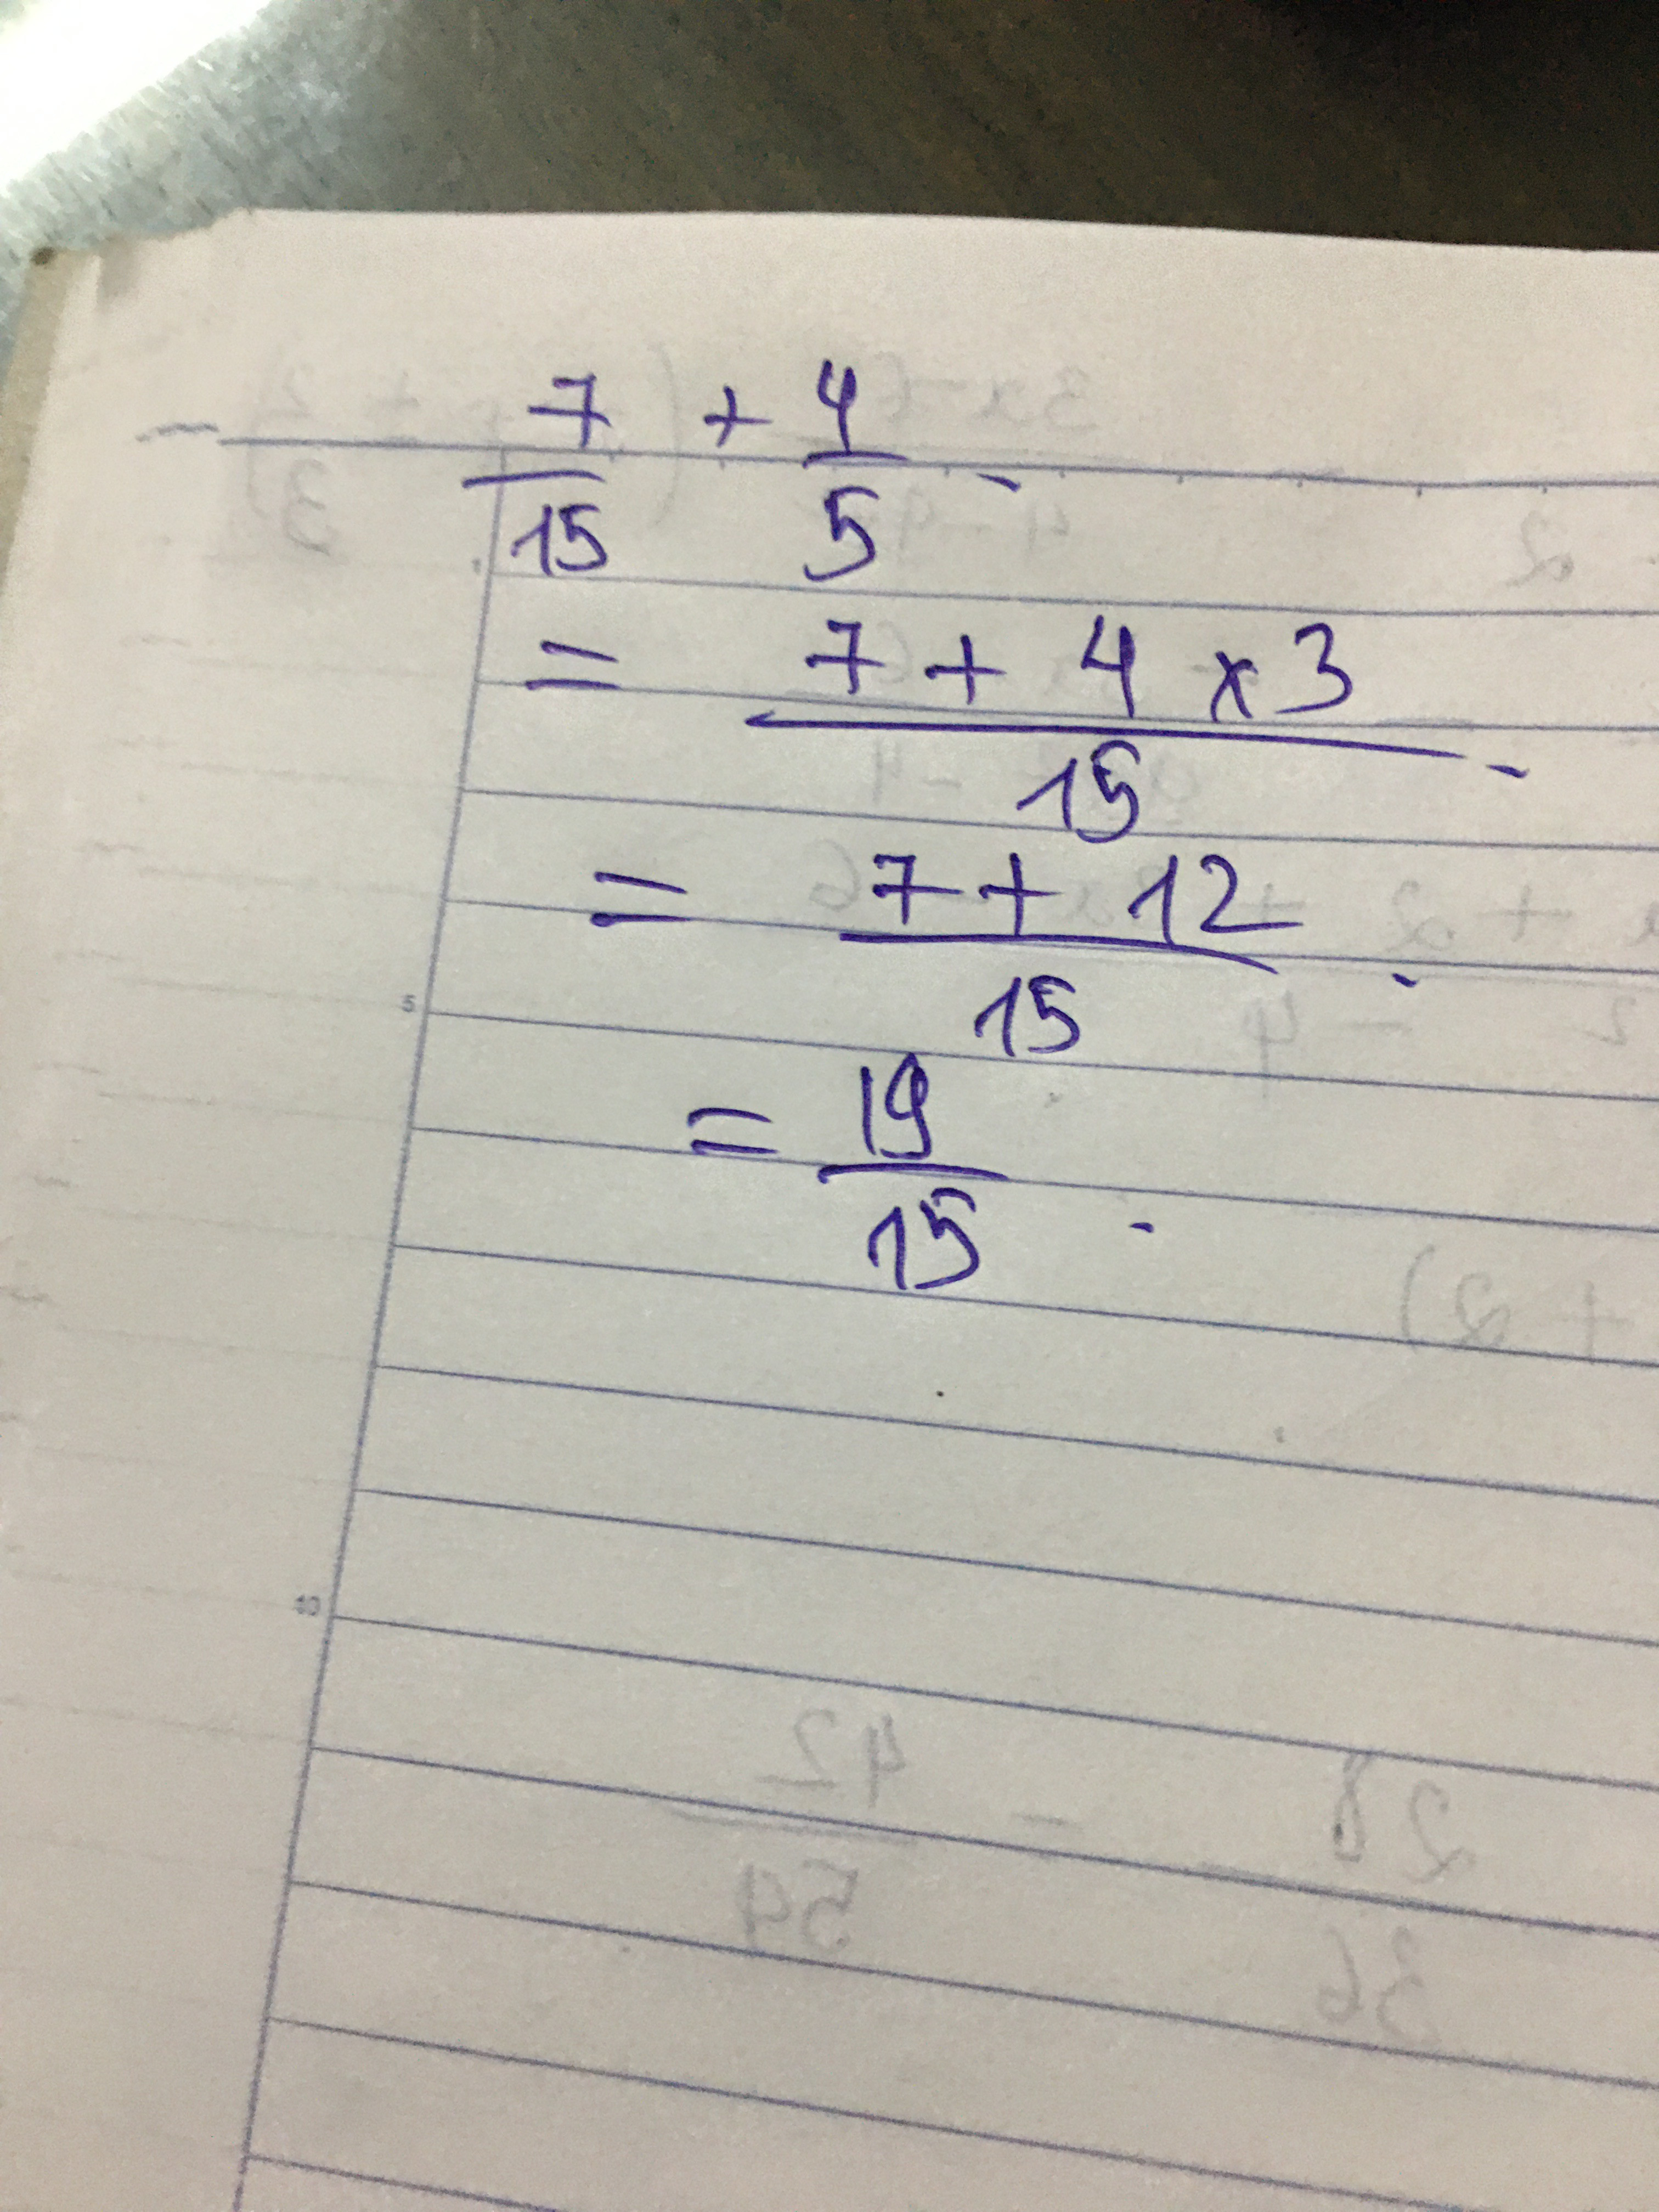 7/15 + 4/5
= (7 + 4 x 3)/15
= (7 + 12)/15
5
= 19/15
10